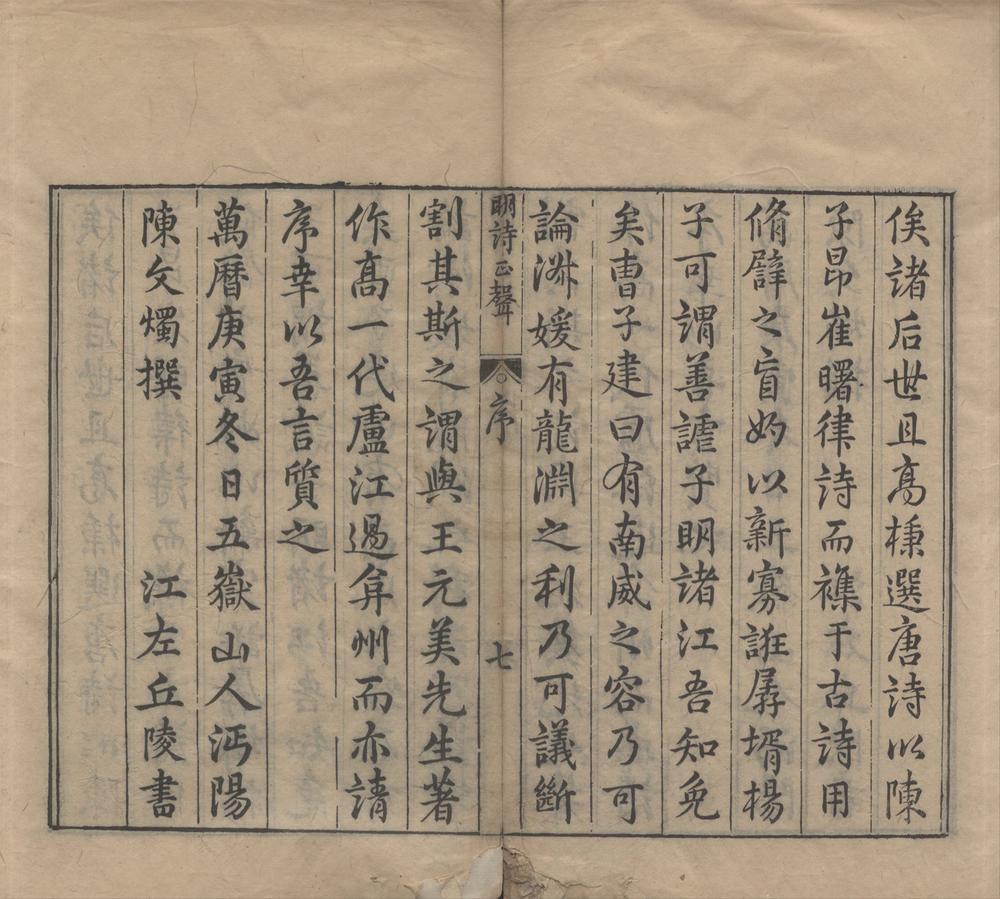 俟諸后世且高棅選唐詩以陳
子昂崔曙律詩而襍于古詩用
脩辟之盲妁以新寡誑孱壻楊
子可謂善謔子明諸江吾知免
矣曹子建曰有南威之容乃可
論淋媛有龍淵之利乃可議斷
明詩正聲
序
七
割其斯之謂與王元美先生著
作高一代盧江過弇州而亦請
序幸以吾言質之
萬曆庚寅冬日五嶽山人沔陽
陳文燭撰 江左丘陵書